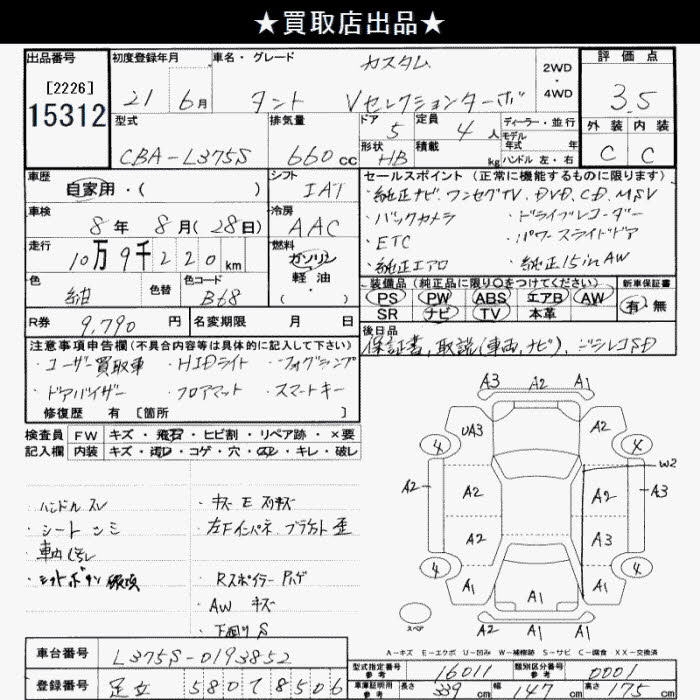 ★買取店出品★
出品番号 初度登録年月 車名・グレード カスタム 2WD・4WD 評価点
[2226] 15312 21年 6月 タント Vセレクションターボ 3.5
型式 排気量 ドア 5 定員 4人 ディーラー・並行 外装 内装
CBA-L375S 660cc 形状 HB 積載 kg モデル年式 年 ハンドル 左・右 C C
車歴 シフト セールスポイント(正常に機能するものに限ります)
自家用・( ) IAT ・純正ナビ、ワンセグTV、DVD、CD、MSV
車検 冷房 ・バックカメラ ・ドライブレコーダー
8年 8月(28日) AAC ・ETC ・パワースライドドア
走行 燃料 ・純正エアロ ・純正15inAW
10万9千220km ガソリン 軽油・( ) 装備品(純正品に限り○をつけてください) 新車保証書
色 色替 色コード PS PW ABS エアB AW 有・無
紺 B68 SR ナビ TV 本革
R券 9,790円 名変期限 月 日 後日品
注意事項申告欄(不具合内容等は具体的に記入して下さい) 保証書、取説(車両、ナビ)、
・ユーザー買取車 ・HIDライト ・フォグランプ
・ドアバイザー ・フロアマット ・スマートキー
修復歴 有 [箇所 ]
検査員 FW キズ・飛石・ヒビ割・リペア跡・×要
記入欄 内装 キズ・ ・コゲ・穴・ ・キレ・破レ
・ハンドル スレ ・キズ E スリキズ
・シート シミ 左Fインパネ ブラケット 歪
・車内
・シフトボタン 破損 ・Rスポイラー ハゲ
・AW キズ
・下廻り S
A3 A2 A1
UA3 A2
4 4
W2
A2 A2 A2 A3
A2 A3
4 4
A1 A1 A1
スペア A2 A1 A1
A-キズ E-エクボ U-凹み W-補修跡 S-サビ C-腐食 XX-交換済
車台番号 L375S-0193852
登録番号 足立 580 す 8506
型式指定番号 参考 16011 類別区分番号 参考 0001
車庫証明用 参考 長さ 339cm 幅 147cm 高さ 175cm